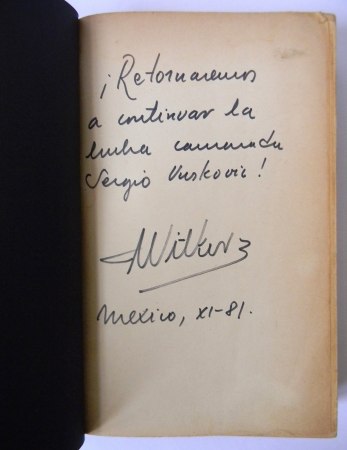 ¡Retornaremos
a continuar la
lucha camarada
Sergio Vuskovic!
Mexico, XI-81.